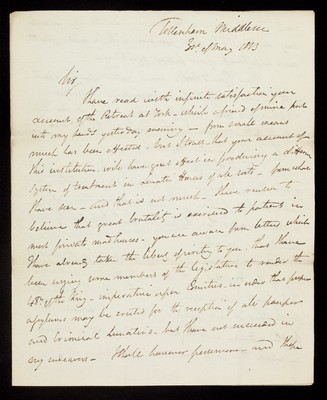 Tottenham Middlesex
30th of May 1813
Sir
I have read with infinite satisfaction your
account of the Retreat at York - which a friend of mine put
into my hands yesterday evening - from small means
much has been effected - but I trust that your account of
this institution will have great effect in producing a different
system of treatment in private Houses of all sorts - from what
I have seen - and that is not much - I have reason to
believe that great brutality is exercised to patients in
most private madhouses - you are aware from letters which
I have already taken the liberty of writing to you - that I have
been urging some members of the legislature to render the
48th of the King - imperative upon Counties - in order that proper
asylums may be erected for the reception of all pauper
and Criminal lunatics - but I have not succeeded in
my endeavors - I shall however persevere - and I hope